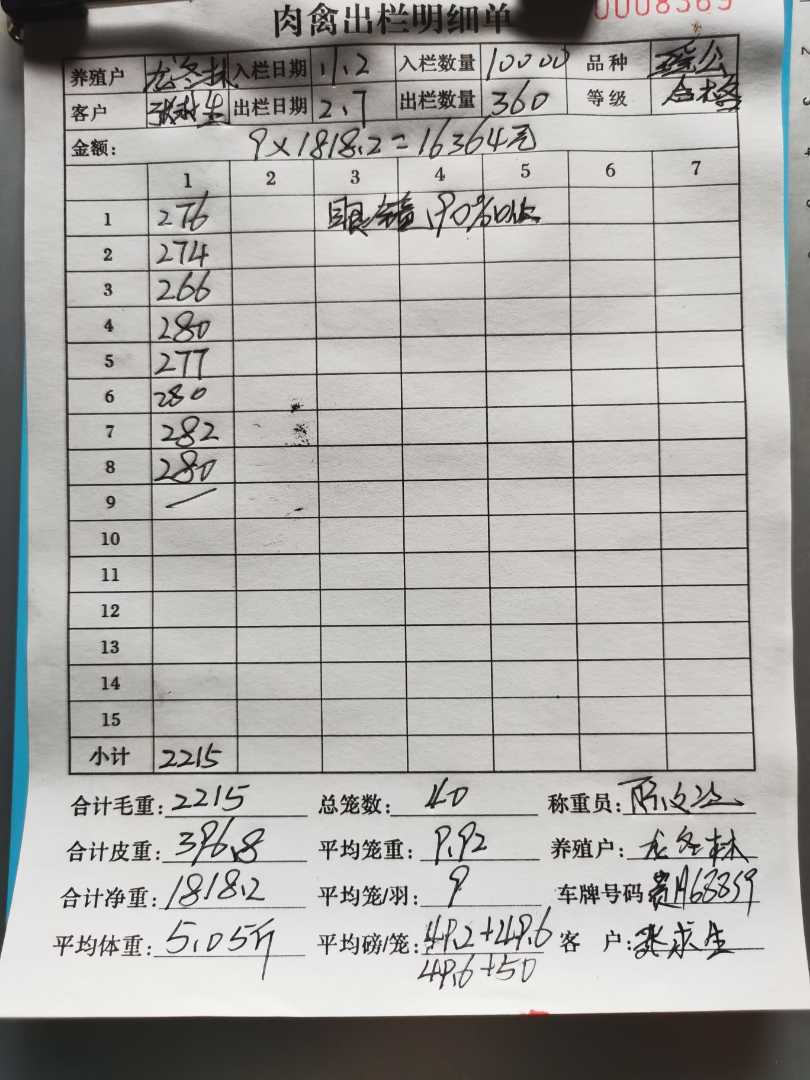 肉禽出栏明细单 0008369
养殖户 龙冬林 入栏日期 11.2 入栏数量 10000 品种
客户 张求生 出栏日期 2.7 出栏数量 360 等级 合格
金额: 9×1818.2=16364元
1 2 3 4 5 6 7
1 276 眼镜90%以
2 274
3 266
4 280
5 277
6 280
7 282
8 280
9 —
10
11
12
13
14
15
小计 2215
合计毛重: 2215 总笼数: 40 称重员:
合计皮重: 396.8 平均笼重: 9.92 养殖户: 龙冬林
合计净重: 1818.2 平均笼/羽: 9 车牌号码 贵
平均体重: 5.05斤 平均磅/笼: 49.2+49.6 客 户: 张求生
49.6+50